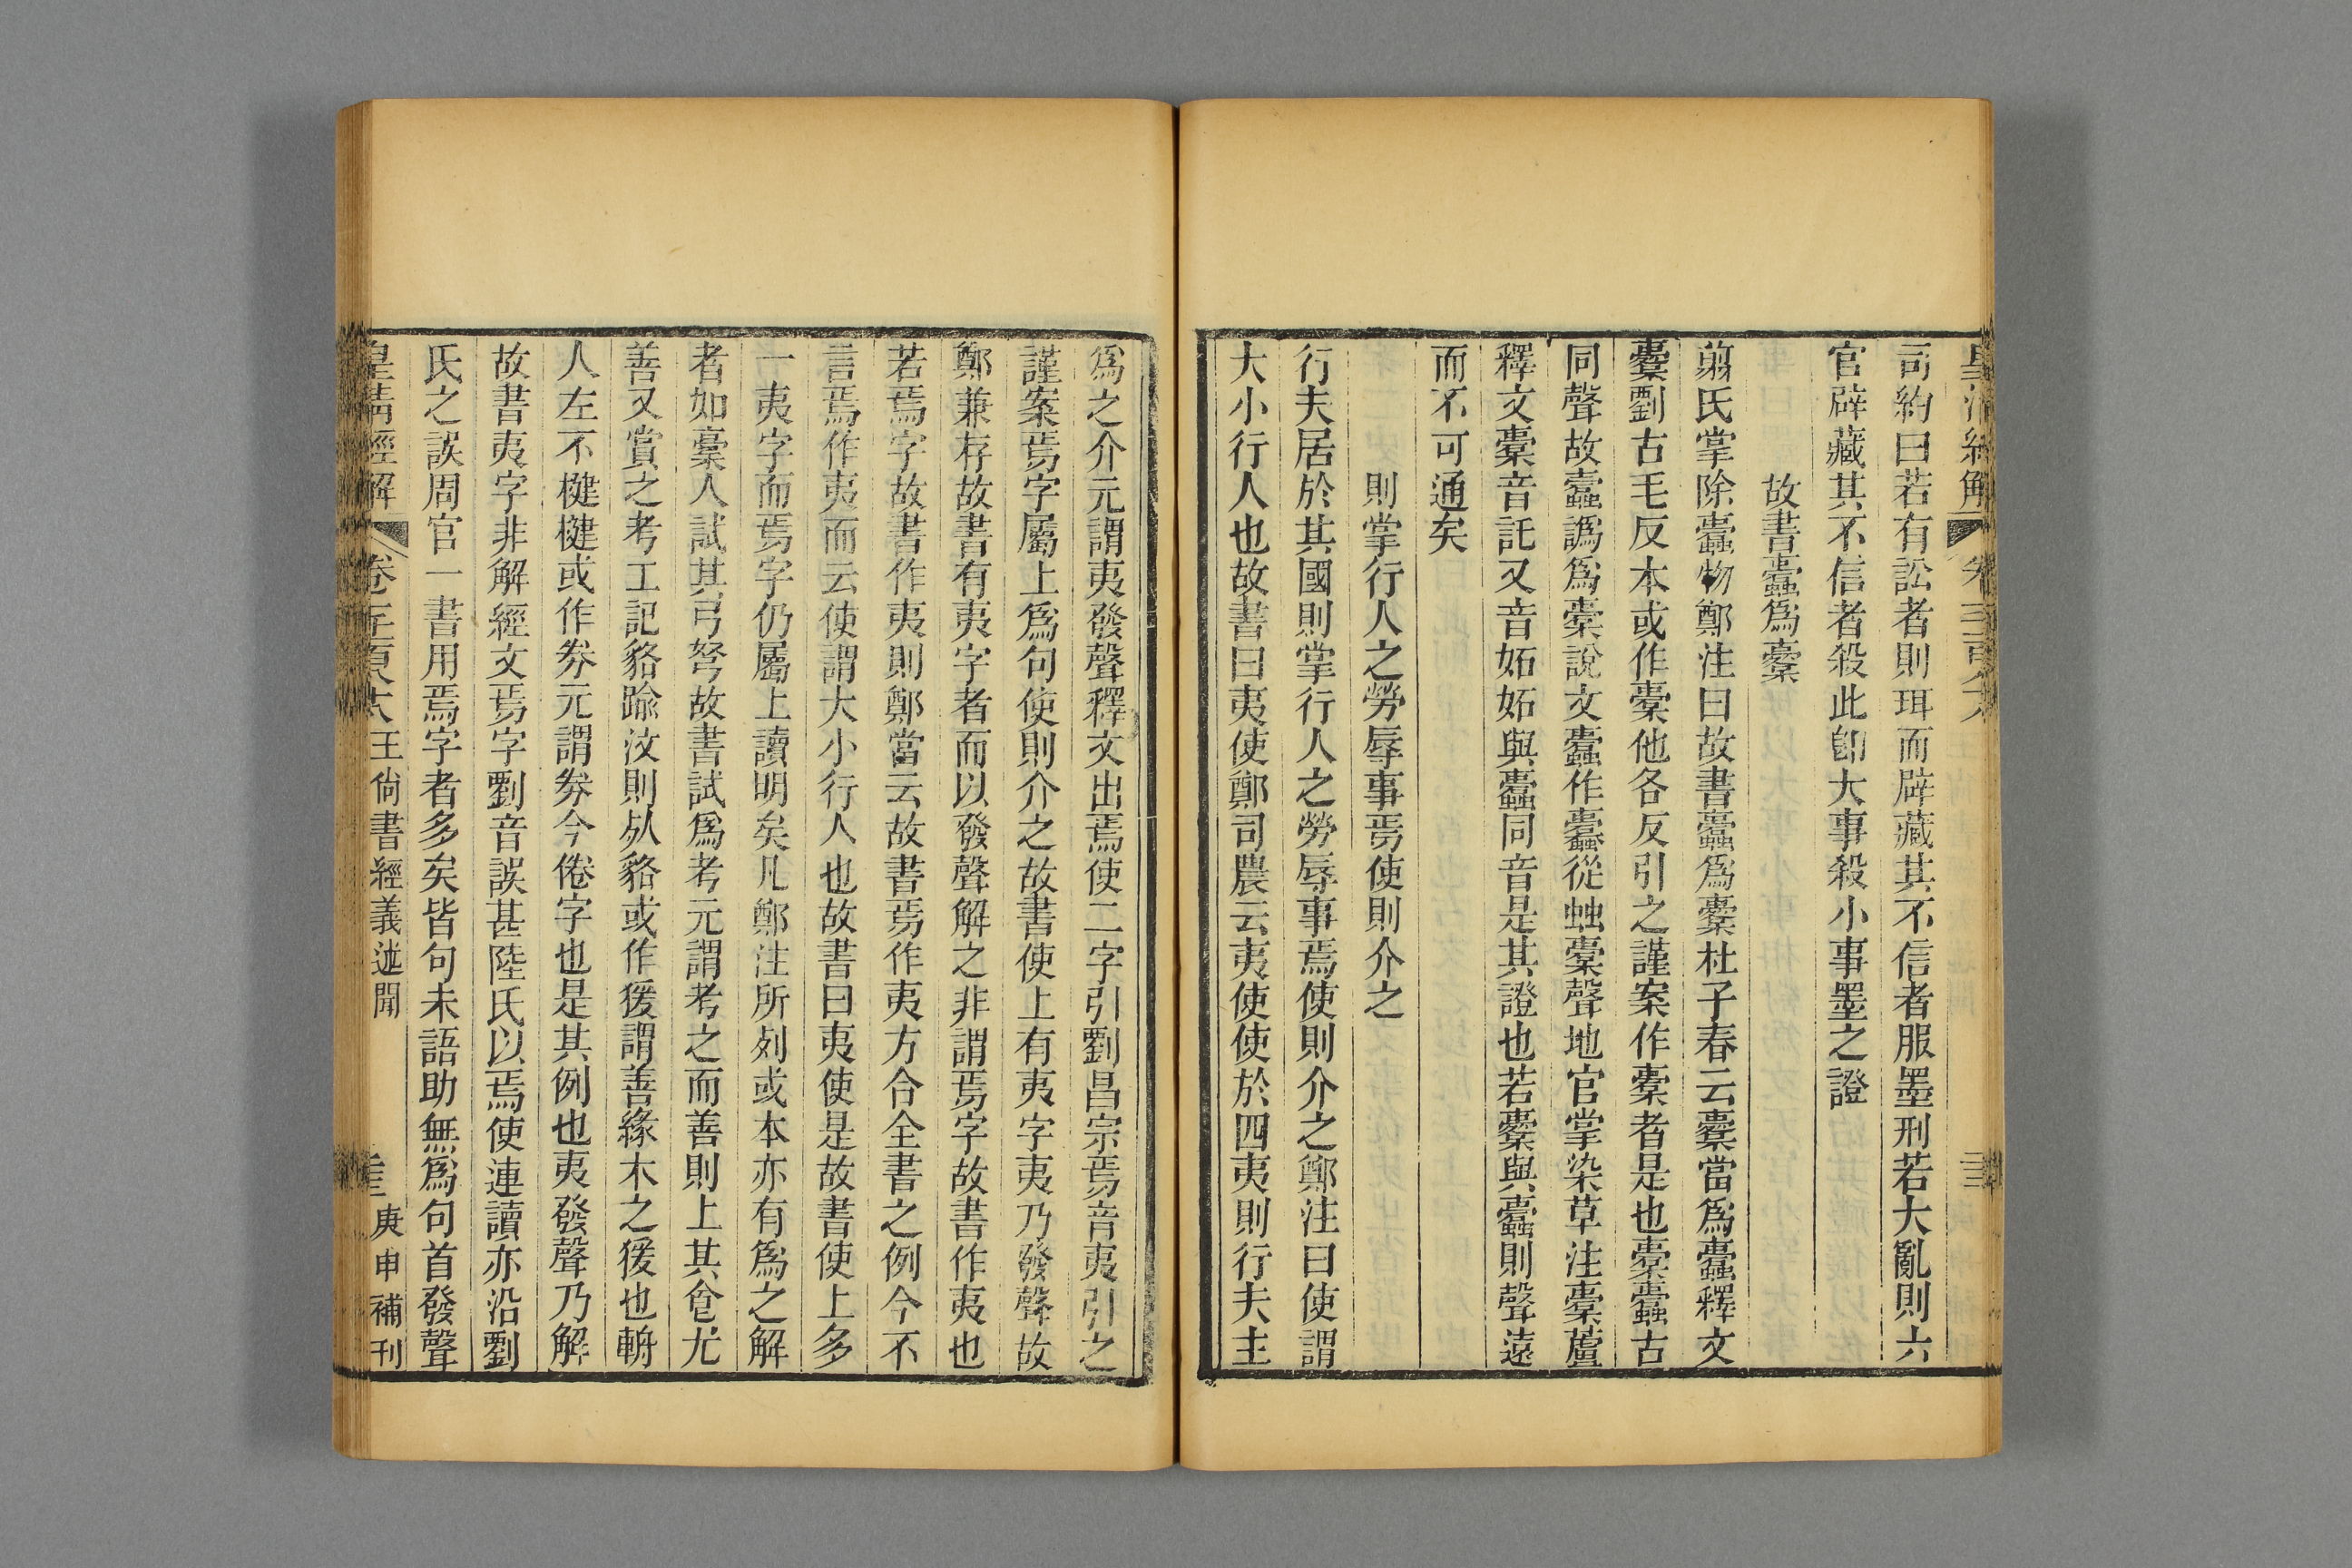 皇清經解
司約曰若有訟者則珥而辟藏其不信者服墨刑若大亂則六
官辟藏其不信者殺此卽大事殺小事墨之證
故書蠹爲櫜
翦氏掌除蠹物鄭注曰故書蠹爲櫜杜子春云櫜當爲蠹釋文
櫜劉古毛反本或作橐他各反引之謹案作橐者是也橐蠹古
同聲故蠹譌爲橐說文蠹作螙從䖵橐聲地官掌染草注橐蘆
釋文橐音託又音妬妬與蠹同音是其證也若櫜與蠹則聲遠
而不可通矣
則掌行人之勞辱事焉使則介之
行夫居於其國則掌行人之勞辱事焉使則介之鄭注曰使謂
大小行人也故書曰夷使鄭司農云夷使使於四夷則行夫主
爲之介元謂夷發聲釋文出焉使二字引劉昌宗焉音夷引之
謹案焉字屬上爲句使則介之故書使上有夷字夷乃發聲故
鄭兼存故書有夷字者而以發聲解之非謂焉字故書作夷也
若焉字故書作夷則鄭當云故書焉作夷方合全書之例今不
言焉作夷而云使謂大小行人也故書曰夷使是故書使上多
一夷字而焉字仍屬上讀明矣凡鄭注所列或本亦有爲之解
者如槀人試其弓弩故書試爲考元謂考之而善則上其食尤
善又賞之考工記貉踰汶則死貉或作猨謂善緣木之猨也輈
人左不楗楗或作券元謂券今倦字也是其例也夷發聲乃解
故書夷字非解經文焉字劉音誤甚陸氏以焉使連讀亦沿劉
氏之誤周官一書用焉字者多矣皆句末語助無爲句首發聲
皇清經解 卷 王尙書經義述聞 庚申補刊